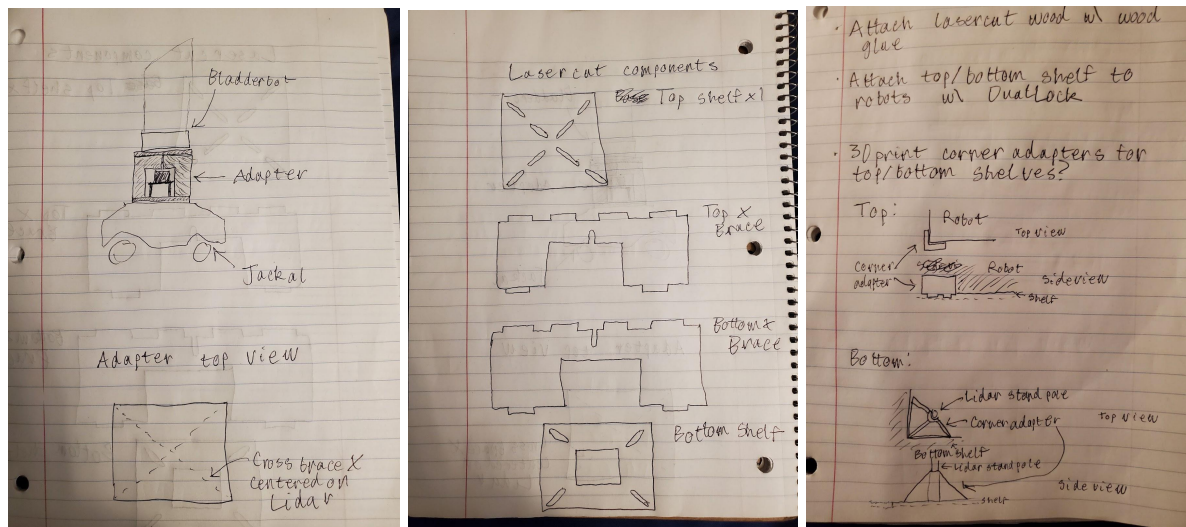 Bladderbot
Adapter
Jackal
Adapter top view
Cross brace X
centered on
Lidar
Lasercut components
Top shelf x1
Top X
Brace
Bottom X
Brace
Bottom Shelf
· Attach lasercut wood w\ wood
glue
· Attach top/bottom shelf to
robots w\ DualLock
· 3D print corner adapters for
top/bottom shelves?
Top:
Robot
Top view
Corner
adapter
Robot
Side view
shelf
Bottom:
Lidar stand pole
Corner adapter
Top view
Bottom shelf
Lidar stand pole
Side view
shelf